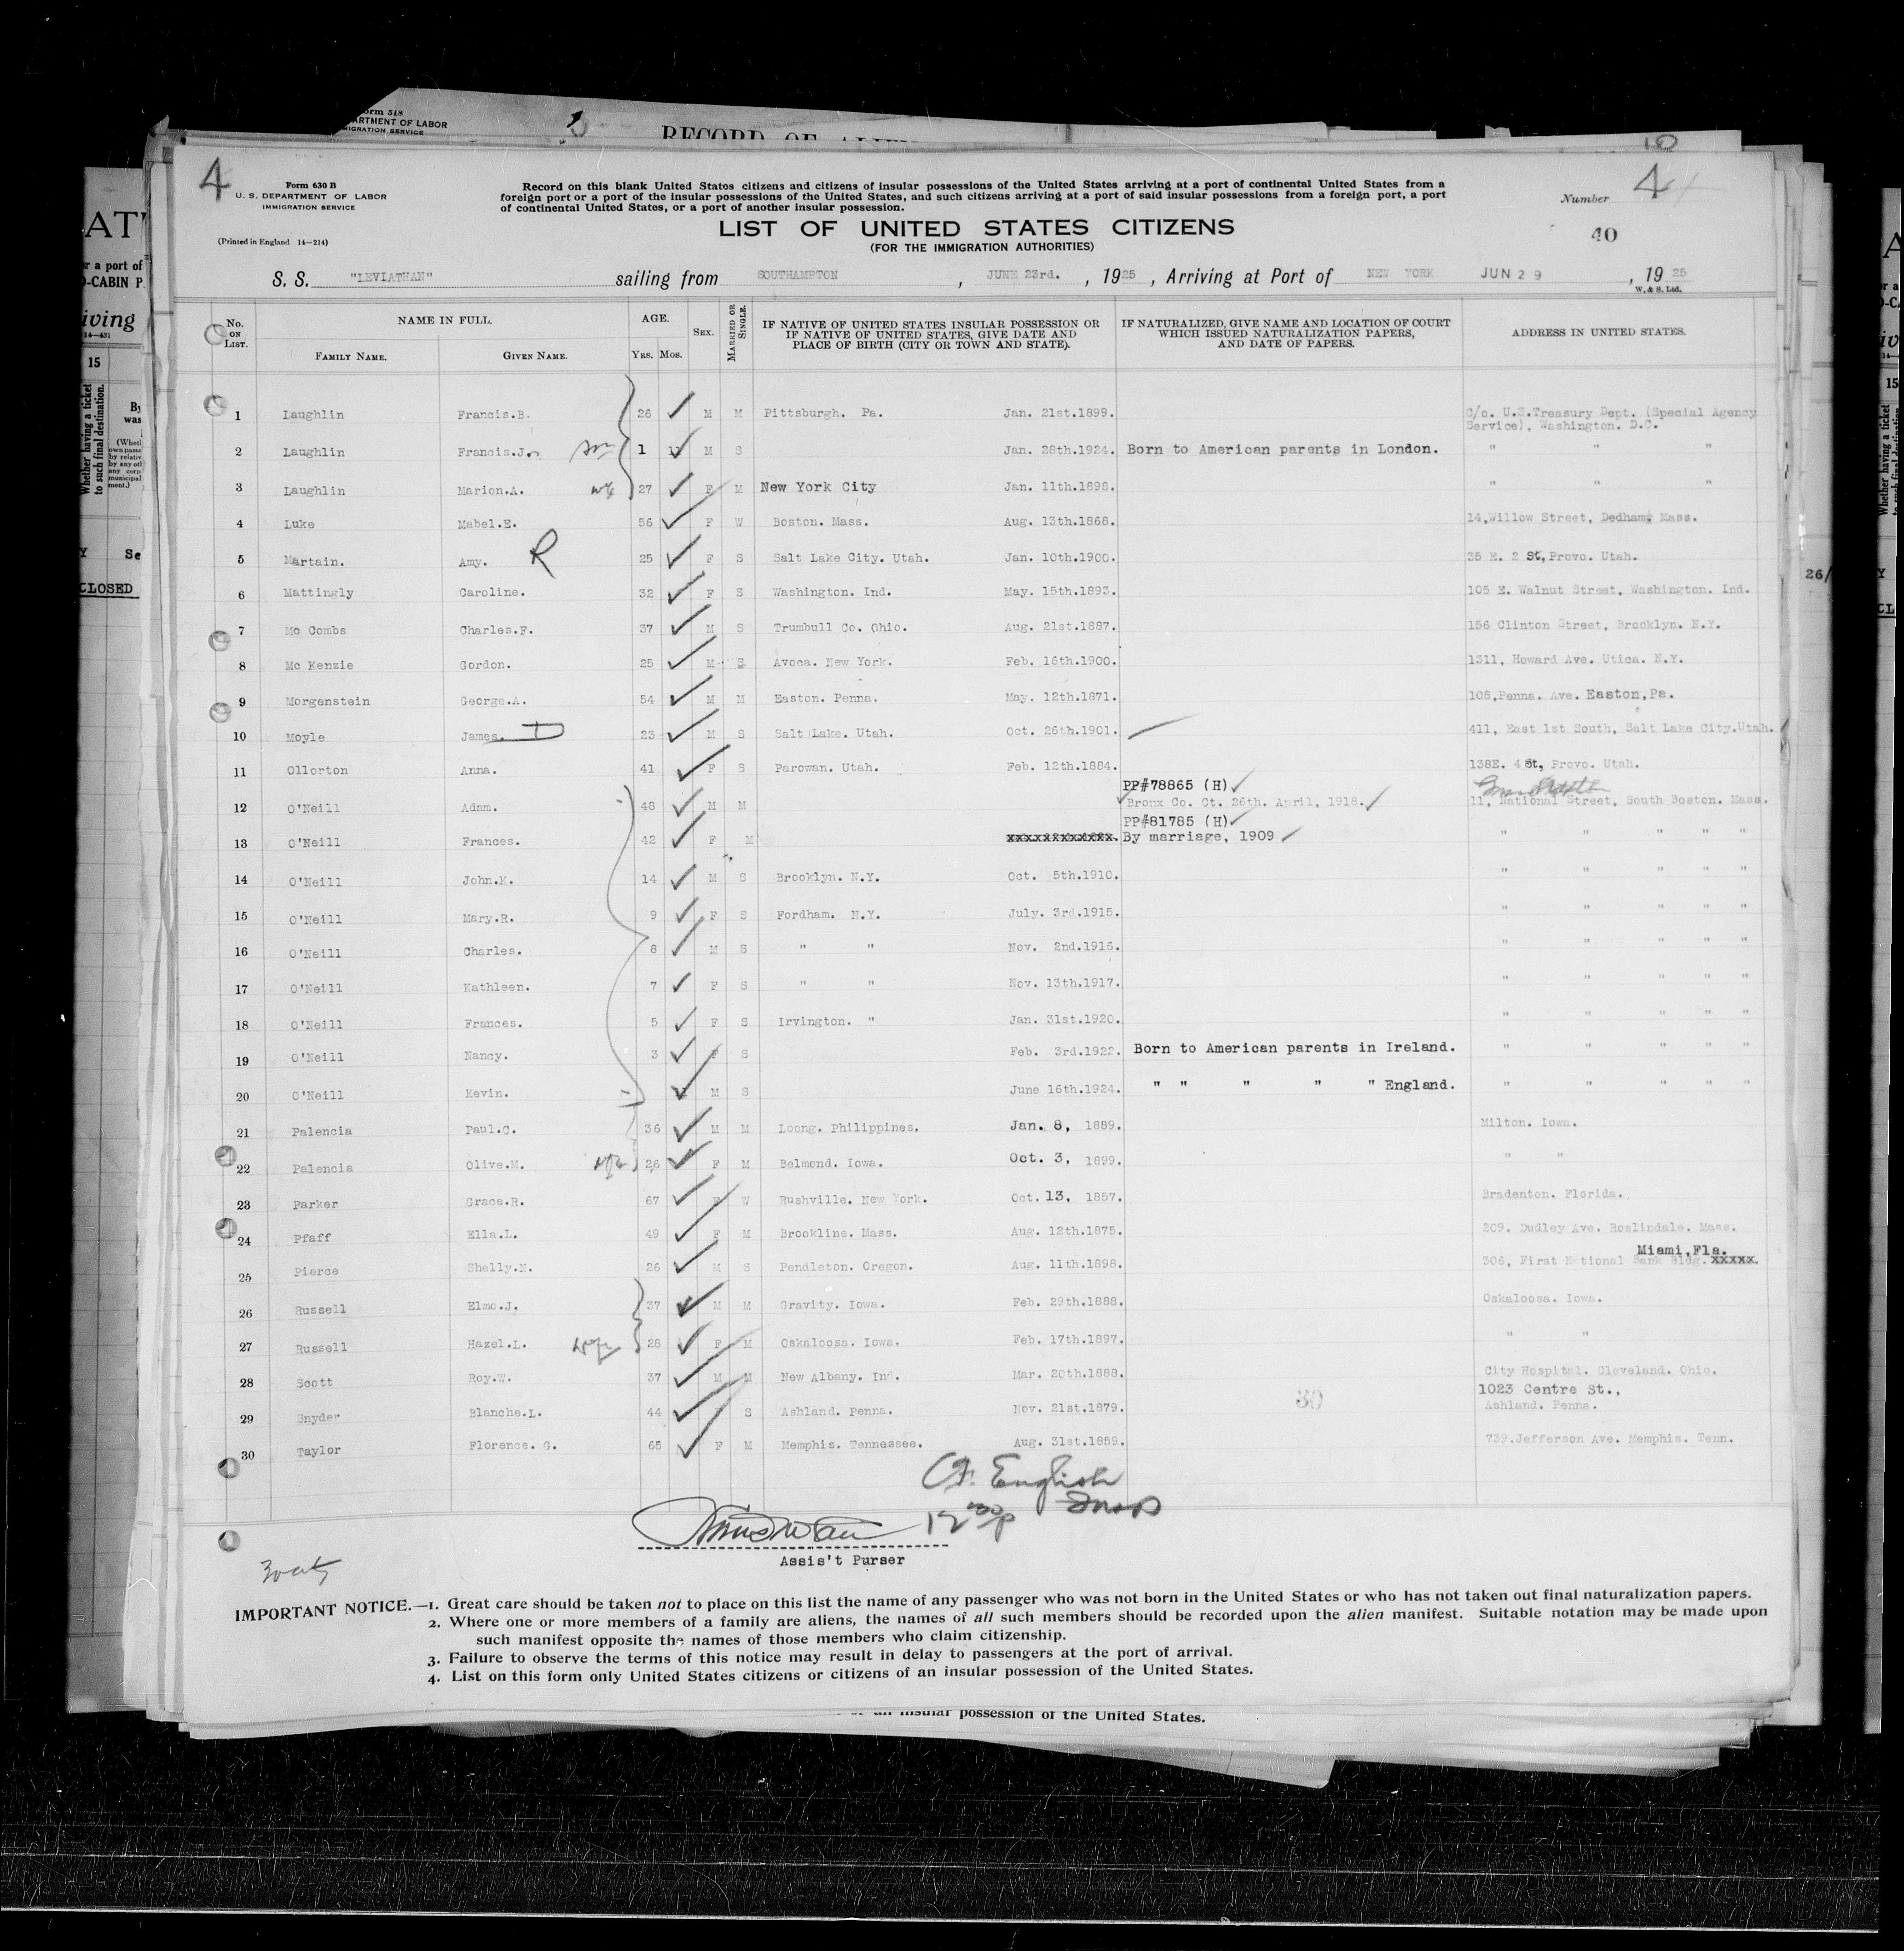 Form 318
ARTMENT OF LABOR
MIGRATION SERVICE
RECORD OF ALIEN
10
4
Form 630 B
U. S. DEPARTMENT OF LABOR
IMMIGRATION SERVICE
(Printed in England 14—214)
Record on this blank United States citizens and citizens of insular possessions of the United States arriving at a port of continental United States from a
foreign port or a port of the insular possessions of the United States, and such citizens arriving at a port of said insular possessions from a foreign port, a port
of continental United States, or a port of another insular possession.
Number 4
40
LIST OF UNITED STATES CITIZENS
(FOR THE IMMIGRATION AUTHORITIES)
S. S. "LEVIATHAN" sailing from SOUTHAMPTON, JUNE 23rd., 1925, Arriving at Port of NEW YORK JUN 29, 1925
W. & S. Ltd.
No. ON LIST. NAME IN FULL. FAMILY NAME. GIVEN NAME. AGE. YRS. MOS. SEX. MARRIED OR SINGLE. IF NATIVE OF UNITED STATES INSULAR POSSESSION OR IF NATIVE OF UNITED STATES, GIVE DATE AND PLACE OF BIRTH (CITY OR TOWN AND STATE). IF NATURALIZED, GIVE NAME AND LOCATION OF COURT WHICH ISSUED NATURALIZATION PAPERS, AND DATE OF PAPERS. ADDRESS IN UNITED STATES.
1 Laughlin Francis.B. 26 M M Pittsburgh. Pa. Jan. 21st.1899. C/o. U.S.Treasury Dept. (Special Agency Service), Washington. D.C.
2 Laughlin Francis.J. son 1 11 M S Jan. 28th.1924. Born to American parents in London. " " "
3 Laughlin Marion.A. wf 27 F M New York City Jan. 11th.1898. " " "
4 Luke Mabel.E. 56 F W Boston. Mass. Aug. 13th.1868. 14,Willow Street, Dedham, Mass.
5 Martain. Amy. R 25 F S Salt Lake City. Utah. Jan. 10th.1900. 35 E. 2 St, Provo. Utah.
6 Mattingly Caroline. 32 F S Washington. Ind. May. 15th.1893. 105 E. Walnut Street, Washington. Ind.
7 Mc Combs Charles.F. 37 M S Trumbull Co. Ohio. Aug. 21st.1887. 156 Clinton Street, Brooklyn. N.Y.
8 Mc Kenzie Gordon. 25 M S Avoca. New York. Feb. 16th.1900. 1311, Howard Ave. Utica. N.Y.
9 Morgenstein George.A. 54 M M Easton. Penna. May. 12th.1871. 108,Penna. Ave. Easton,Pa.
10 Moyle James. D 23 M S Salt Lake. Utah. Oct. 26th.1901. 411, East 1st South, Salt Lake City.Utah.
11 Ollorton Anna. 41 F S Parowan. Utah. Feb. 12th.1884. 138E. 4 St, Provo. Utah.
PP#78865 (H)
12 O'Neill Adam. 48 M M Bronx Co. Ct. 26th. April, 1918. 11, National Street, South Boston. Mass.
PP#81785 (H)
13 O'Neill Frances. 42 F M xxxxxxxxxxxxx. By marriage, 1909 " " " " "
14 O'Neill John.K. 14 M S Brooklyn. N.Y. Oct. 5th.1910. " " " " "
15 O'Neill Mary.R. 9 F S Fordham. N.Y. July. 3rd.1915. " " " " "
16 O'Neill Charles. 8 M S " " Nov. 2nd.1916. " " " " "
17 O'Neill Kathleen. 7 F S " " Nov. 13th.1917. " " " " "
18 O'Neill Frances. 5 F S Irvington. " Jan. 31st.1920. " " " " "
19 O'Neill Nancy. 3 F S Feb. 3rd.1922. Born to American parents in Ireland. " " " " "
20 O'Neill Kevin. 11 M S June 16th.1924. " " " " " England. " " " " "
21 Palencia Paul.C. 36 M M Loong. Philippines. Jan. 8, 1889. Milton. Iowa.
22 Palencia Olive.M. wife 26 F M Belmond. Iowa. Oct. 3, 1899. " "
23 Parker Grace.R. 67 F W Rushville. New York. Oct. 13, 1857. Bradenton. Florida.
24 Pfaff Ella.L. 49 F M Brookline. Mass. Aug. 12th.1875. 209. Dudley Ave. Roslindale. Mass.
Miami,Fla.
25 Pierce Shelly.N. 26 M S Pendleton. Oregon. Aug. 11th.1898. 306, First National Bank Bldg. xxxxx.
26 Russell Elmo.J. 37 M M Gravity. Iowa. Feb. 29th.1888. Oskaloosa. Iowa.
27 Russell Hazel.L. wife 28 F M Oskaloosa. Iowa. Feb. 17th.1897. " "
28 Scott Roy.W. 37 M M New Albany. Ind. Mar. 20th.1888. City Hospital. Cleveland. Ohio.
29 Snyder Blanche.L. 44 F S Ashland. Penna. Nov. 21st.1879. 30 1023 Centre St., Ashland. Penna.
30 Taylor Florence. G. 65 F M Memphis. Tennessee. Aug. 31st.1859. 739.Jefferson Ave. Memphis. Tenn.
English
Insp
12 30 p
Assis't Purser
IMPORTANT NOTICE.—1. Great care should be taken not to place on this list the name of any passenger who was not born in the United States or who has not taken out final naturalization papers.
2. Where one or more members of a family are aliens, the names of all such members should be recorded upon the alien manifest. Suitable notation may be made upon
such manifest opposite the names of those members who claim citizenship.
3. Failure to observe the terms of this notice may result in delay to passengers at the port of arrival.
4. List on this form only United States citizens or citizens of an insular possession of the United States.
insular possession of the United States.